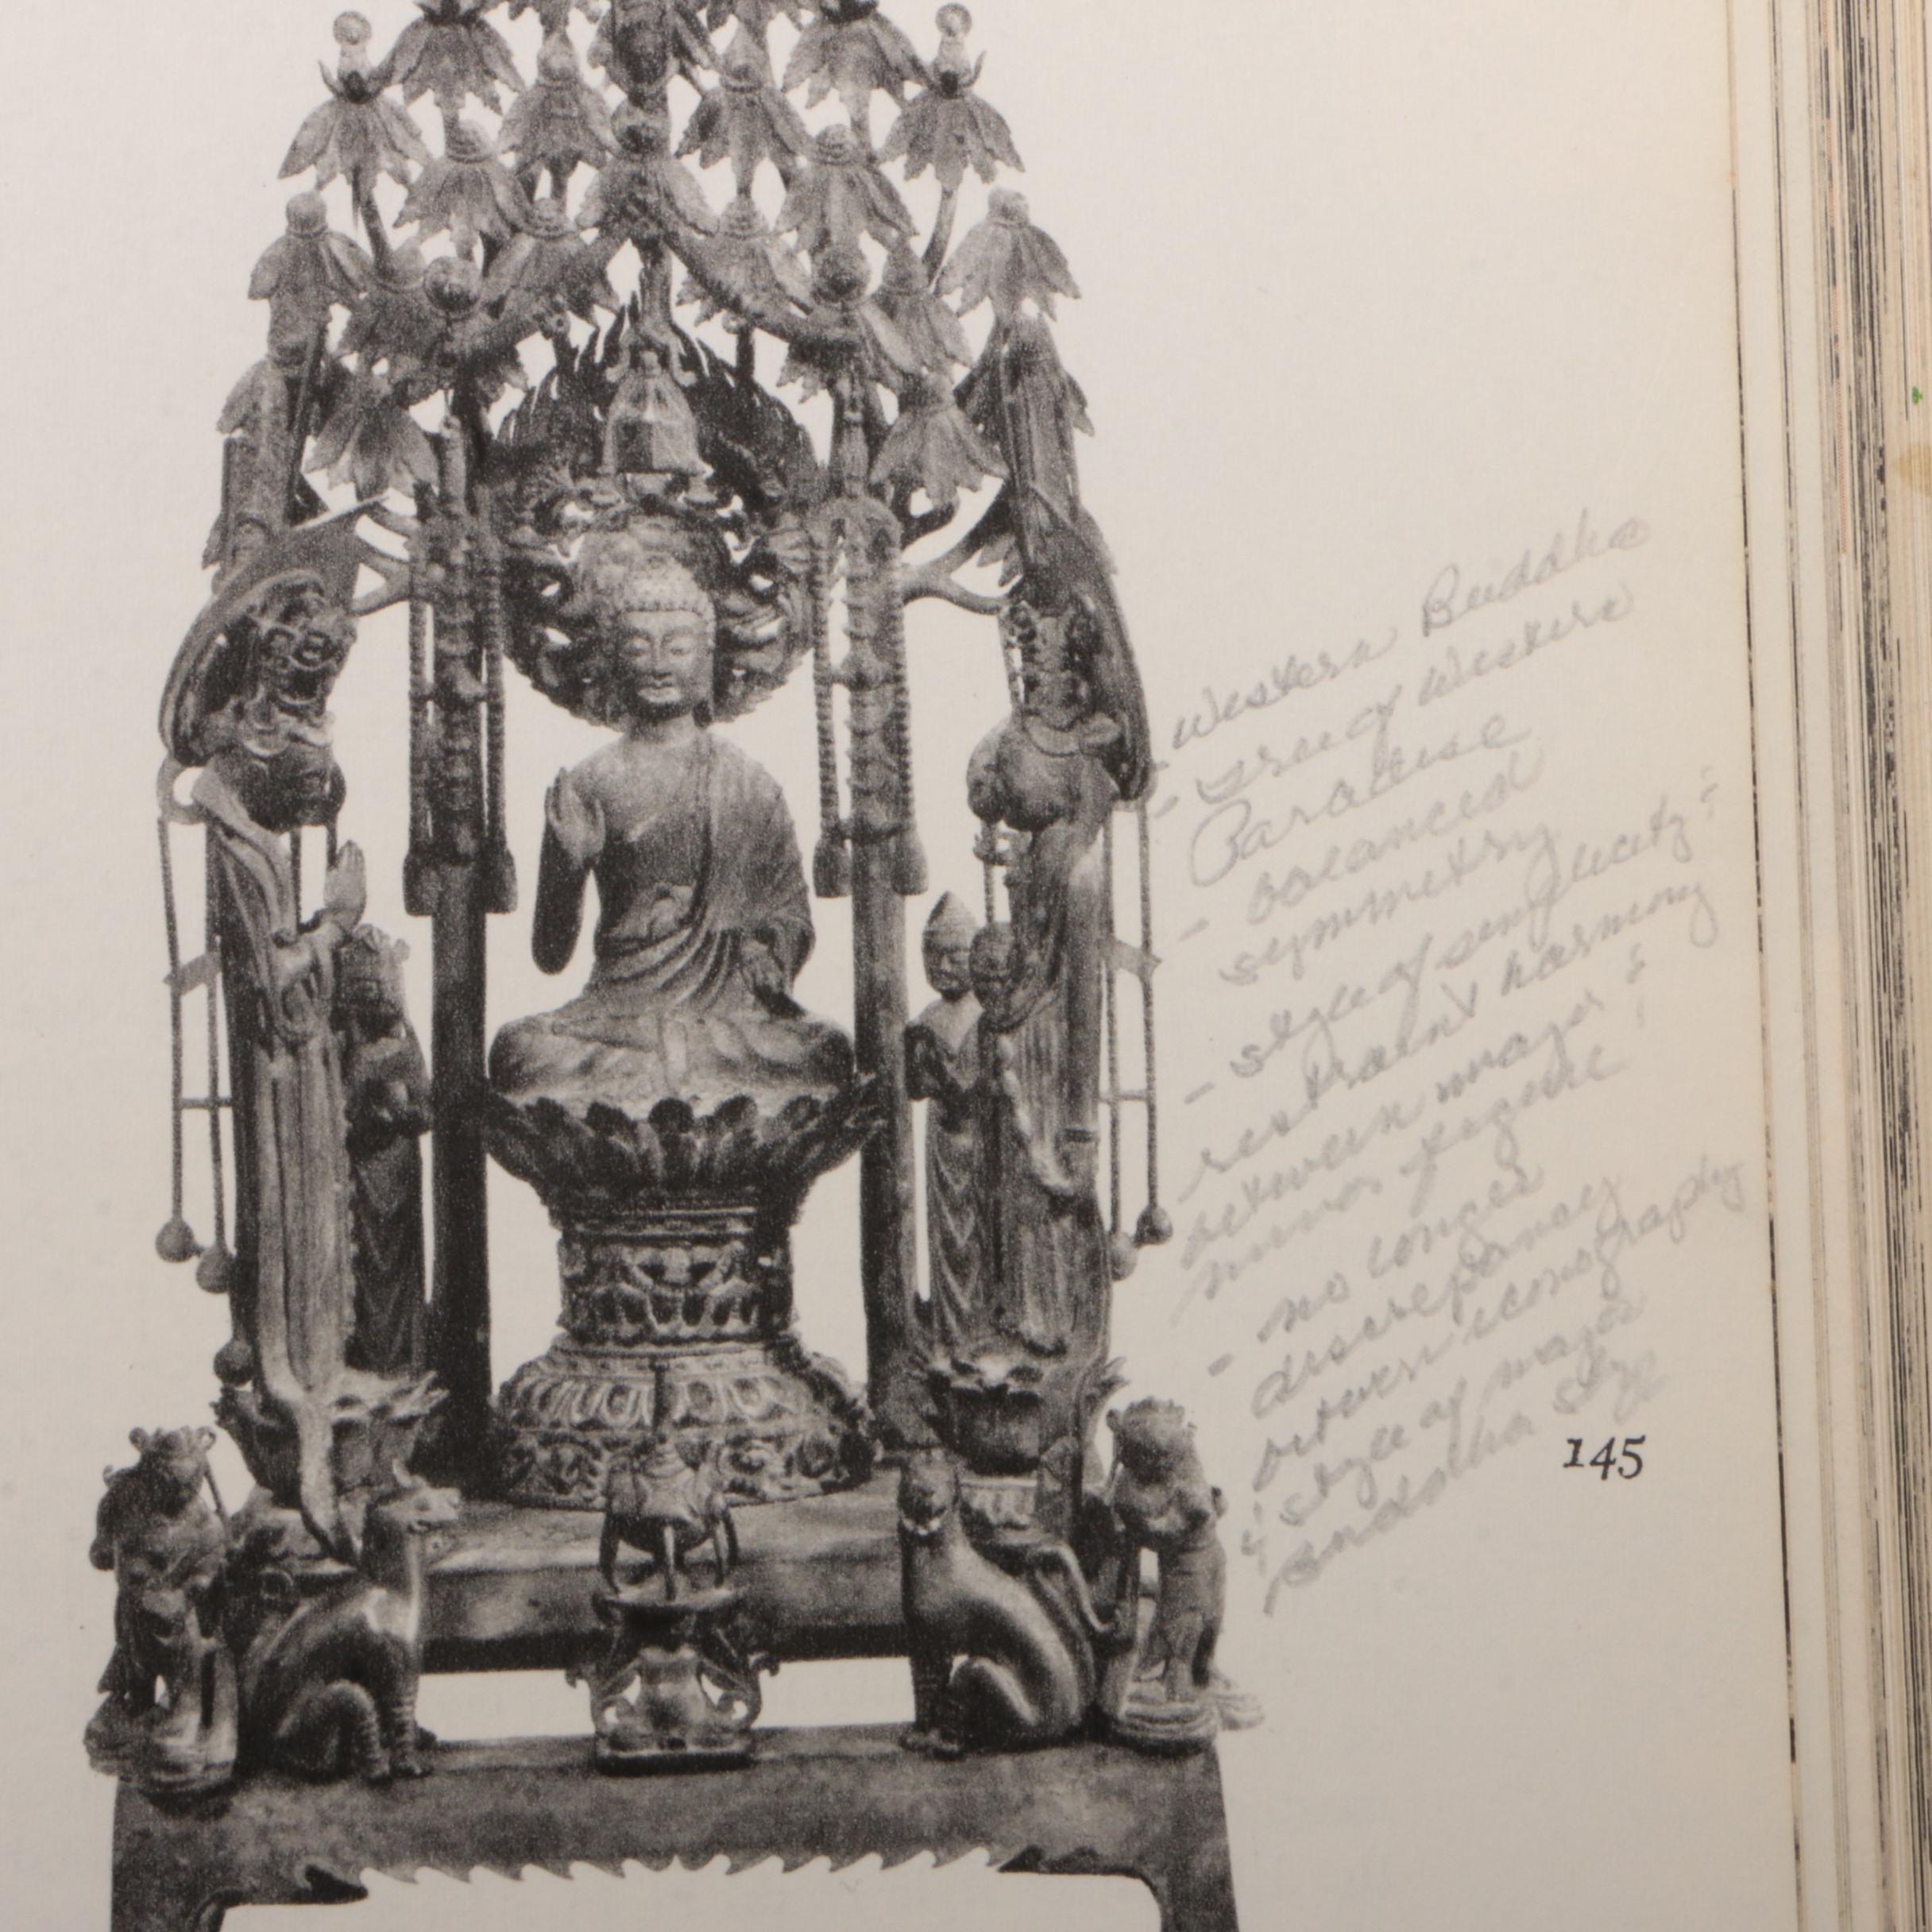 - Western Buddha
- tree of Western
Paradise
- balanced
symmetry
- style of simplicity &
restraint harmony
between major &
minor figure
- no longer
discrepancy
between iconography
& style of major
buddha
145